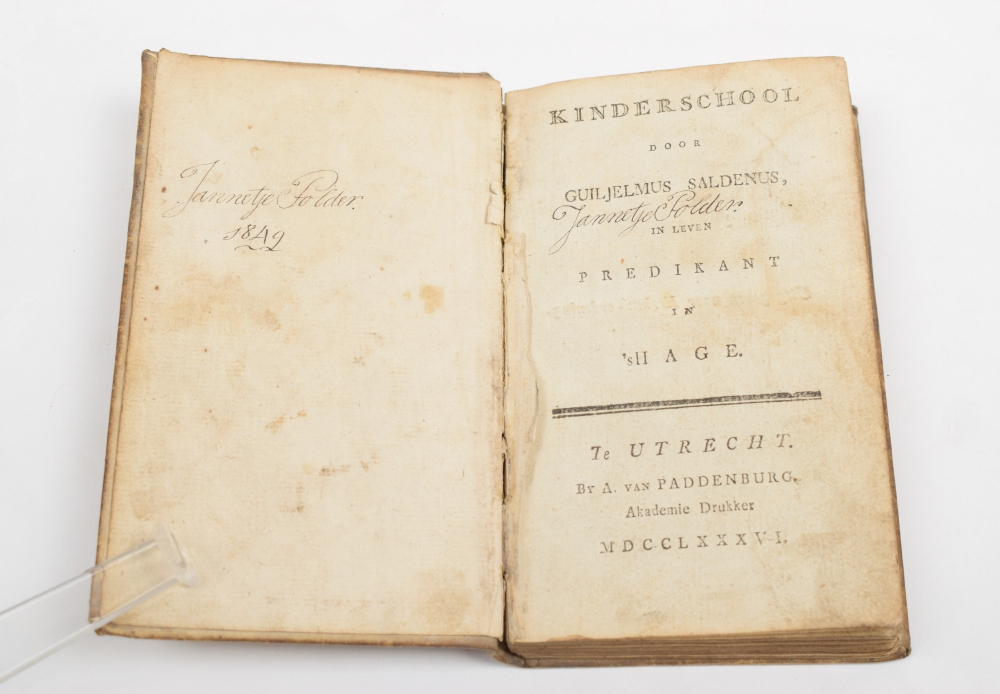 Jannetje Polder.
1849
KINDERSCHOOL
DOOR
GUILJELMUS SALDENUS,
Jannetje Polder.
IN LEVEN
PREDIKANT
IN
'sHAGE.
Te UTRECHT.
By A. VAN PADDENBURG,
Akademie Drukker
MDCCLXXXVI.